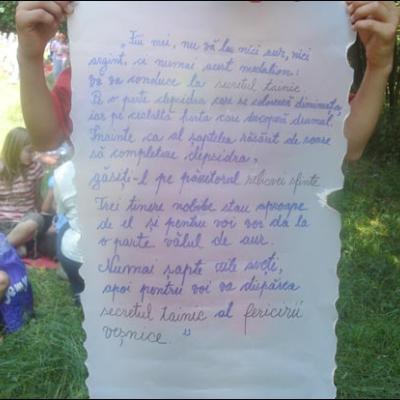 „Fiii mei, nu vă las nici aur, nici
argint, ci numai acest medalion:
vă va conduce la secretul tainic.
Pe o parte clepsidra care se colorează dimineața,
iar pe cealaltă harta care descoperă drumul.
Înainte ca al șaptelea răsărit de soare
să completeze clepsidra,
găsiți-l pe păzitorul sfinte
Trei tinere nobile stau aproape
de el și pentru voi vor da la
o parte vălul de aur.
Numai șapte zile aveți,
apoi pentru voi va dispărea
secretul tainic al fericirii
veșnice."